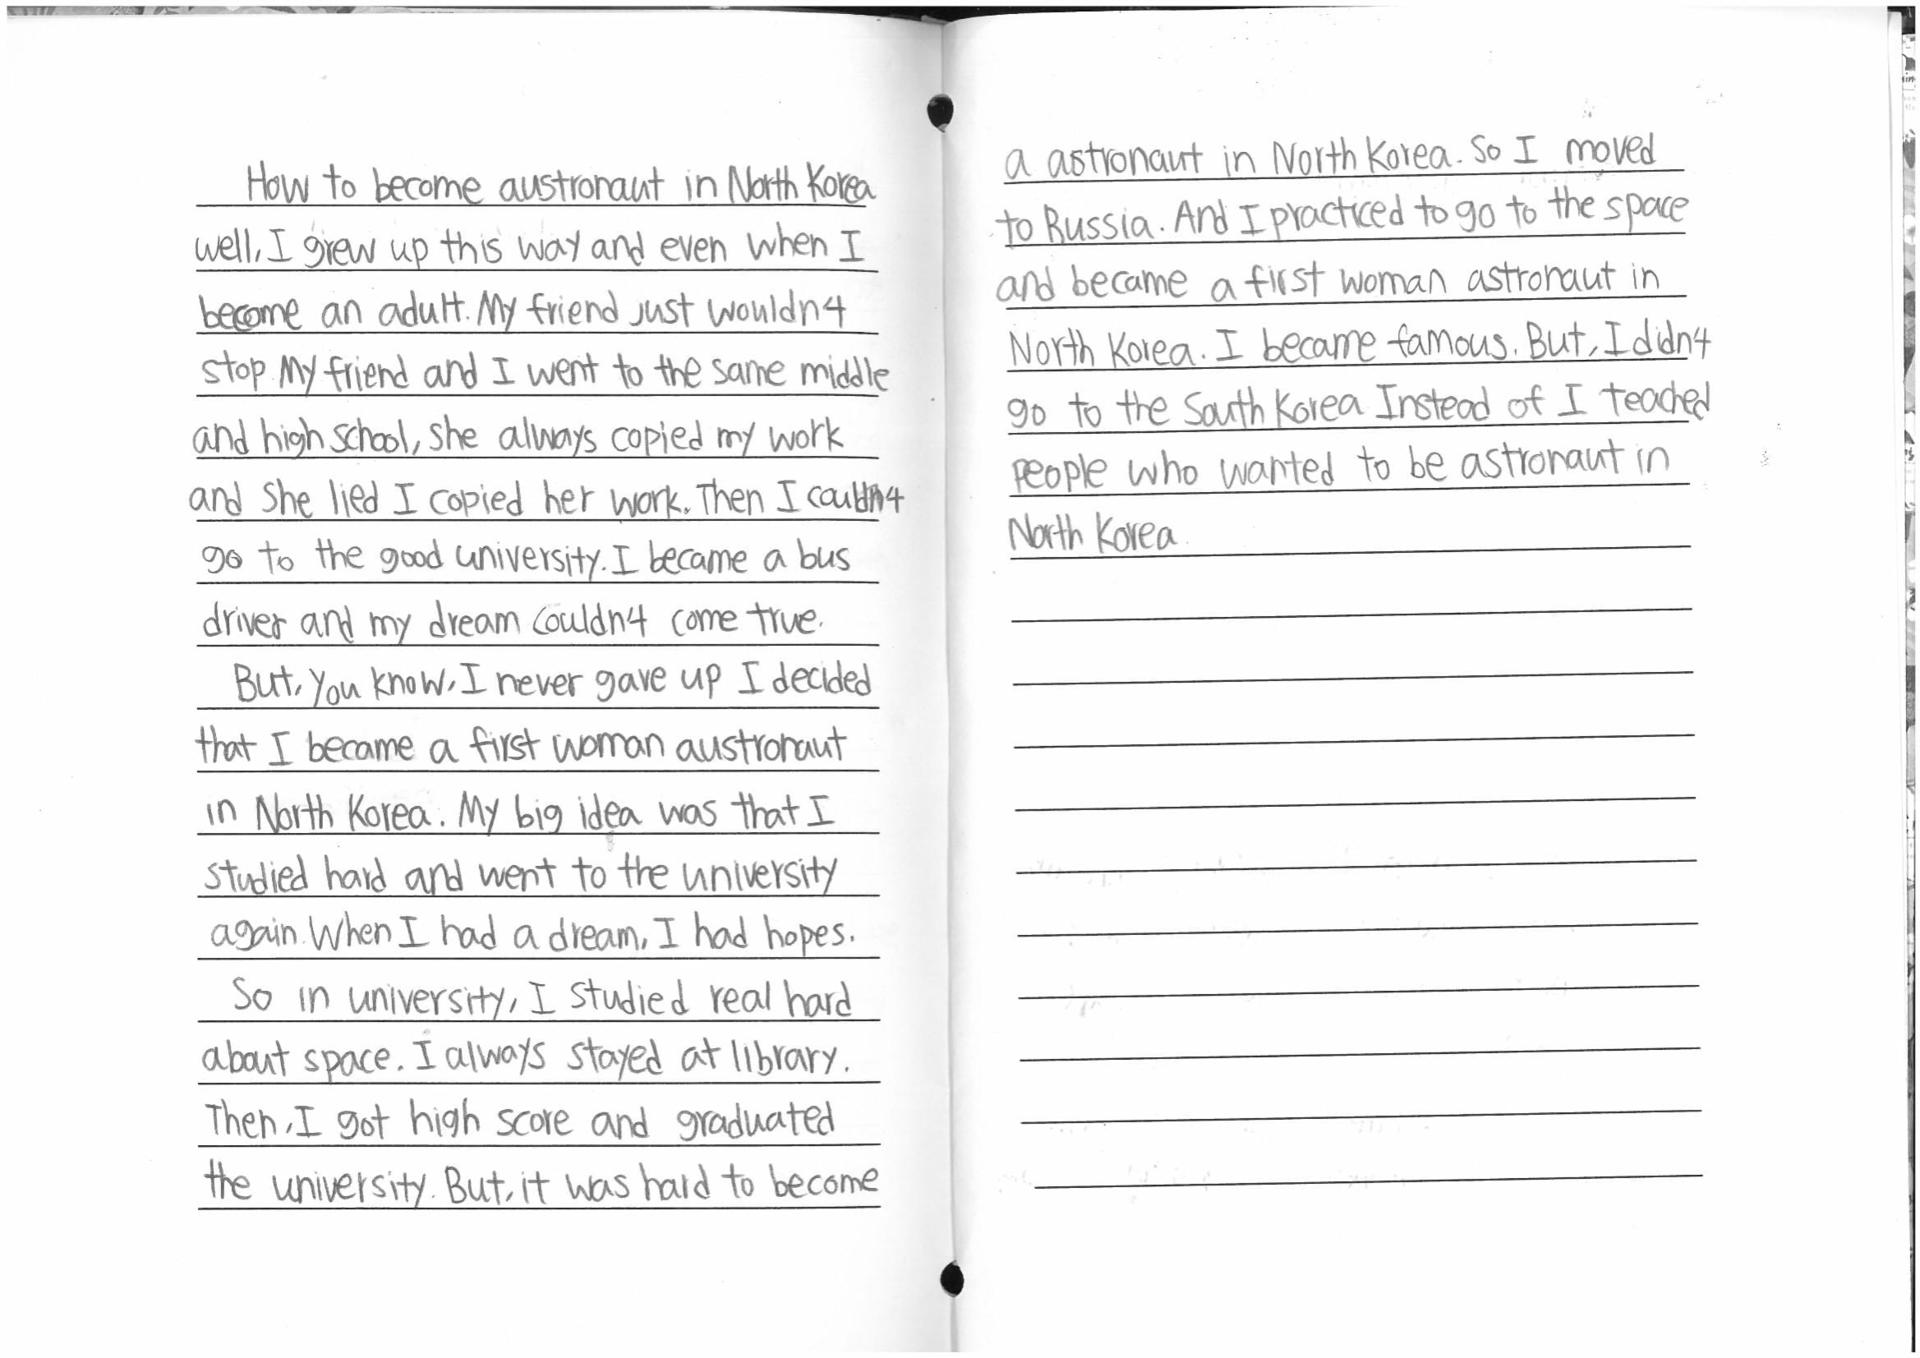 How to become austronaut in North Korea
well, I grew up this way and even when I
become an adult. My friend just wouldn't
stop My friend and I went to the same middle
and high school, she always copied my work
and She lied I copied her work. Then I couldn't
go to the good university. I became a bus
driver and my dream couldn't come true.
But, you know, I never gave up I decided
that I became a first woman austronaut
in North Korea. My big idea was that I
studied hard and went to the university
again. When I had a dream, I had hopes.
So in university, I studied real hard
about space. I always stayed at library.
Then, I got high score and graduated
the university. But, it was hard to become
a astronaut in North Korea. So I moved
to Russia. And I practiced to go to the space
and became a first woman astronaut in
North Korea. I became famous. But, I didn't
go to the South Korea Instead of I teached
people who wanted to be astronaut in
North Korea.